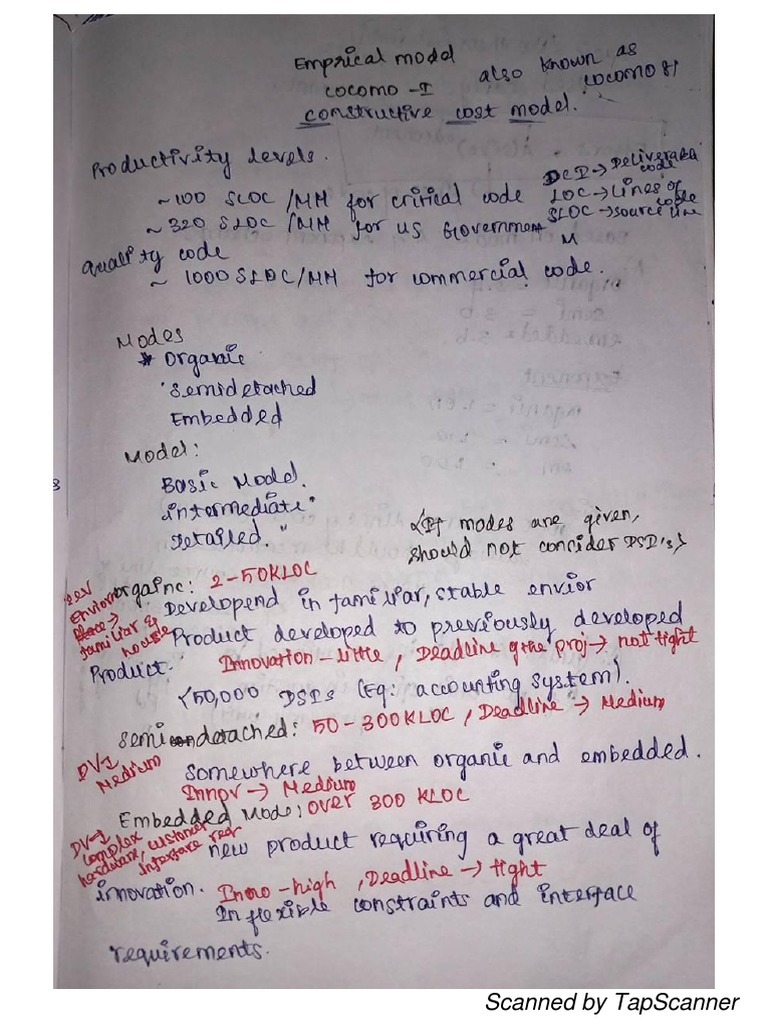 Emprical model
COCOMO -I also known as COCOMO 81
constructive cost model.
Productivity levels.
~100 SLOC /MM for critical code
~ 320 SLOC /MM for US Government
quality code
~ 1000 SLOC/MM for commercial code.
DCI → Deliverable code
LOC → Lines of code
SLOC → source line
M
Modes
* Organic
Semidetached
Embedded
Model:
Basic Model.
intermediate "
Detailed. "
<If modes are given,
should not consider DSI's>
Dev Environ
Place →
familiar &
house
orgainc: 2-50KLOC
Developend in familiar, stable envior
Product developed to previously developed
Product. Innovation - little, Deadline of the proj → not tight
<50,000 DSIs (Eg: accounting system).
semidetached: 50 - 300KLOC, Deadline → Medium
DV-I
Medium
somewhere between organic and embedded.
Innov → Medium
Embedded Mode: over 300 KLOC
DV-I
complex
hardware, customer
interface req
new product requiring a great deal of
innovation. Inno - high, Deadline → tight
Inflexible constraints and interface
requirements.
Scanned by TapScanner